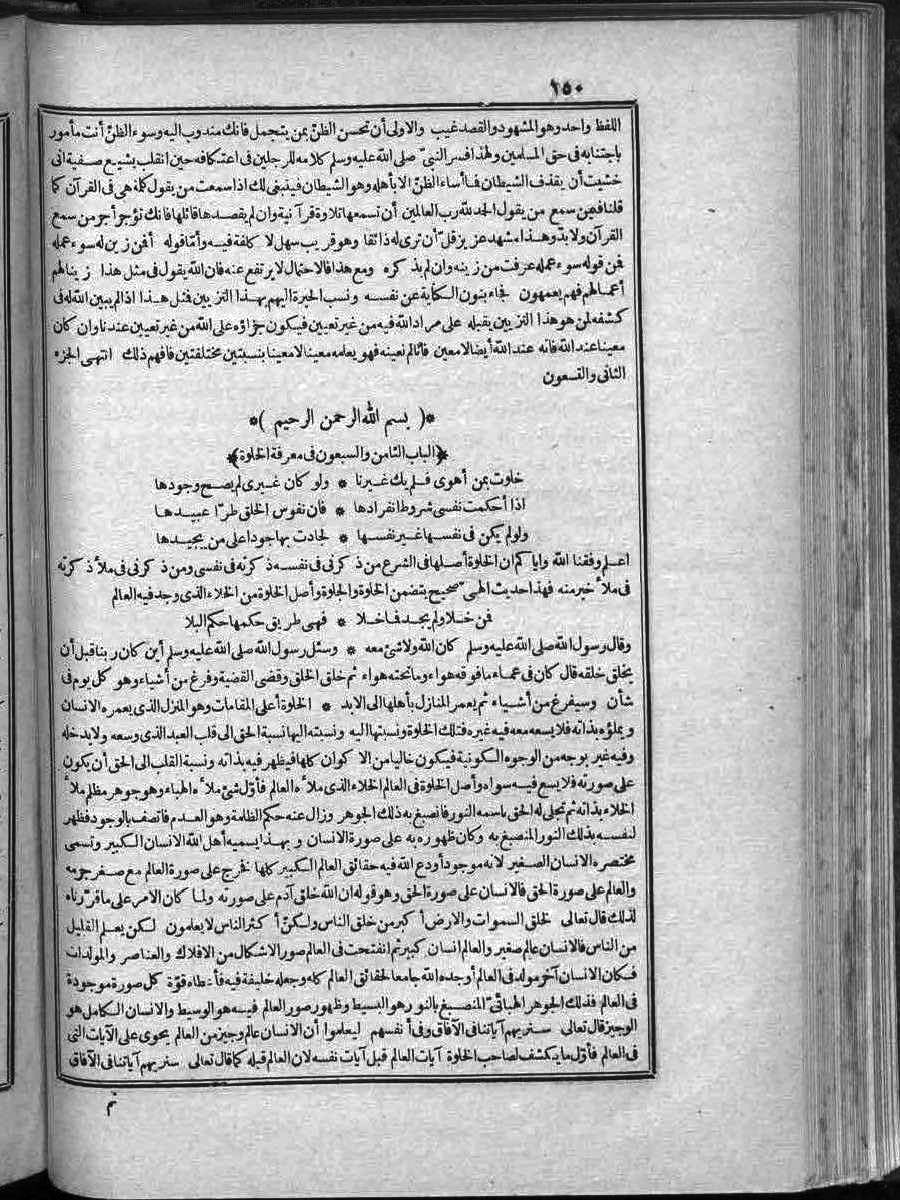 ١٥٠
اللفظ واحد وهو المشهود والقصد غيب والاولى أن تحسن الظنّ بمن يتجمل فانك مندوب اليه وسوء الظنّ أنت مأمور
باجتنابه فى حق المسلمين ولهذا فسر النبىّ صلى الله عليه وسلم كلامه للرجلين فى اعتكافه حين انقلب يشيع صفية انى
خشيت أن يقذف الشيطان فما أساء الظنّ الا بأهله وهو الشيطان فينبغى لك اذا سمعت من يقول كلمة هى فى القرآن كما
قلنا فيمن سمع من يقول الحمد لله رب العالمين أن تسمعها تلاوة قرآنية وان لم يقصدها قائلها فانك تؤجر أجر من سمع
القرآن ولا بدّ وهذا مشهد عزيز قلّ أن ترى له ذائقا وهو قريب سهل لا كلفة فيه وأمّا قوله أفمن زين له سوء عمله
فمن قوله سوء عمله عرفت من زينه وان لم يذكره ومع هذا فالاحتمال لا يرتفع عنه فان الله يقول فى مثل هذا زينا لهم
أعمالهم فهم يعمهون فجاء بنون الكناية عن نفسه ونسب الحيرة اليهم بهذا التزيين فمثل هذا اذا لم يبين الله له فى
كشفه لمن هو هذا التزيين يقبله على مراد الله فيه من غير تعيين فيكون جزاؤه على الله من غير تعيين عندنا وان كان
معينا عند الله فانه عند الله أيضا لا معين فانا لم نعينه فهو يعلمه معينا لا معينا بنسبتين مختلفتين فافهم ذلك انتهى الجزء
الثانى والتسعون
*( بسم الله الرحمن الرحيم )*
﴿الباب الثامن والسبعون فى معرفة الخلوة﴾
خلوت بمن أهوى فلم يك غيرنا * ولو كان غيرى لم يصح وجودها
اذا أحكمت نفسى شروط انفرادها * فان نفوس الخلق طرّا عبيدها
ولو لم يكن فى نفسها غير نفسها * لجادت بها جودا على من يجيدها
اعلم وفقنا الله واياكم ان الخلوة أصلها فى الشرع من ذكرنى فى نفسه ذكرته فى نفسى ومن ذكرنى فى ملأ ذكرته
فى ملأ خير منه فهذا حديث الهىّ صحيح يتضمن الخلوة والجلوة وأصل الخلوة من الخلاء الذى وجد فيه العالم
فمن خلا ولم يجد فما خلا * فهى طريق حكمها حكم البلا
وقال رسول الله صلى الله عليه وسلم كان الله ولا شئ معه * وسئل رسول الله صلى الله عليه وسلم أين كان ربنا قبل أن
يخلق خلقه قال كان فى عماء ما فوقه هواء وما تحته هواء ثم خلق الخلق وقضى القضية وفرغ من أشياء وهو كل يوم فى
شأن وسيفرغ من أشياء ثم يعمر المنازل بأهلها الى الابد * الخلوة أعلى المقامات وهو المنزل الذى يعمره الانسان
ويملؤه بذاته فلا يسعه معه فيه غيره فتلك الخلوة ونسبتها اليه ونسبته اليها نسبة الحق الى قلب العبد الذى وسعه ولا يدخله
وفيه غير بوجه من الوجوه الكونية فيكون خاليا من الاكوان كلها فيظهر فيه بذاته ونسبة القلب الى الحق أن يكون
على صورته فلا يسع فيه سواه وأصل الخلوة فى العالم الخلاء الذى ملأه العالم فأوّل شئ ملأه الهباء وهو جوهر مظلم ملأ
الخلاء بذاته ثم تجلى له الحق باسمه النور فانصبغ به ذلك الجوهر وزال عنه حكم الظلمة وهو العدم فاتصف بالوجود فظهر
لنفسه بذلك النور المنصبغ به وكان ظهوره به على صورة الانسان وبهذا يسميه أهل الله الانسان الكبير وتسمى
مختصره الانسان الصغير لانه موجود أودع الله فيه حقائق العالم الكبير كلها فخرج على صورة العالم مع صغر جرمه
والعالم على صورة الحق فالانسان على صورة الحق وهو قوله ان الله خلق آدم على صورته ولما كان الامر على ما قرّرناه
لذلك قال تعالى لخلق السموات والارض أكبر من خلق الناس ولكنّ أكثر الناس لا يعلمون لكن يعلم القليل
من الناس فالانسان عالم صغير والعالم انسان كبير ثم انفتحت فى العالم صور الاشكال من الافلاك والعناصر والمولدات
فكان الانسان آخر مولد فى العالم أوجده الله جامعا لحقائق العالم كله وجعله خليفة فيه فأعطاه قوّة كل صورة موجودة
فى العالم فذلك الجوهر الهبائىّ المنصبغ بالنور هو البسيط وظهور صور العالم فيه هو الوسيط والانسان الكامل هو
الوجيز قال تعالى سنريهم آياتنا فى الآفاق وفى أنفسهم ليعلموا أن الانسان عالم وجيز من العالم يحوى على الآيات التى
فى العالم فأوّل ما يكشف لصاحب الخلوة آيات العالم قبل آيات نفسه لان العالم قبله كما قال تعالى سنريهم آياتنا فى الآفاق
ثم